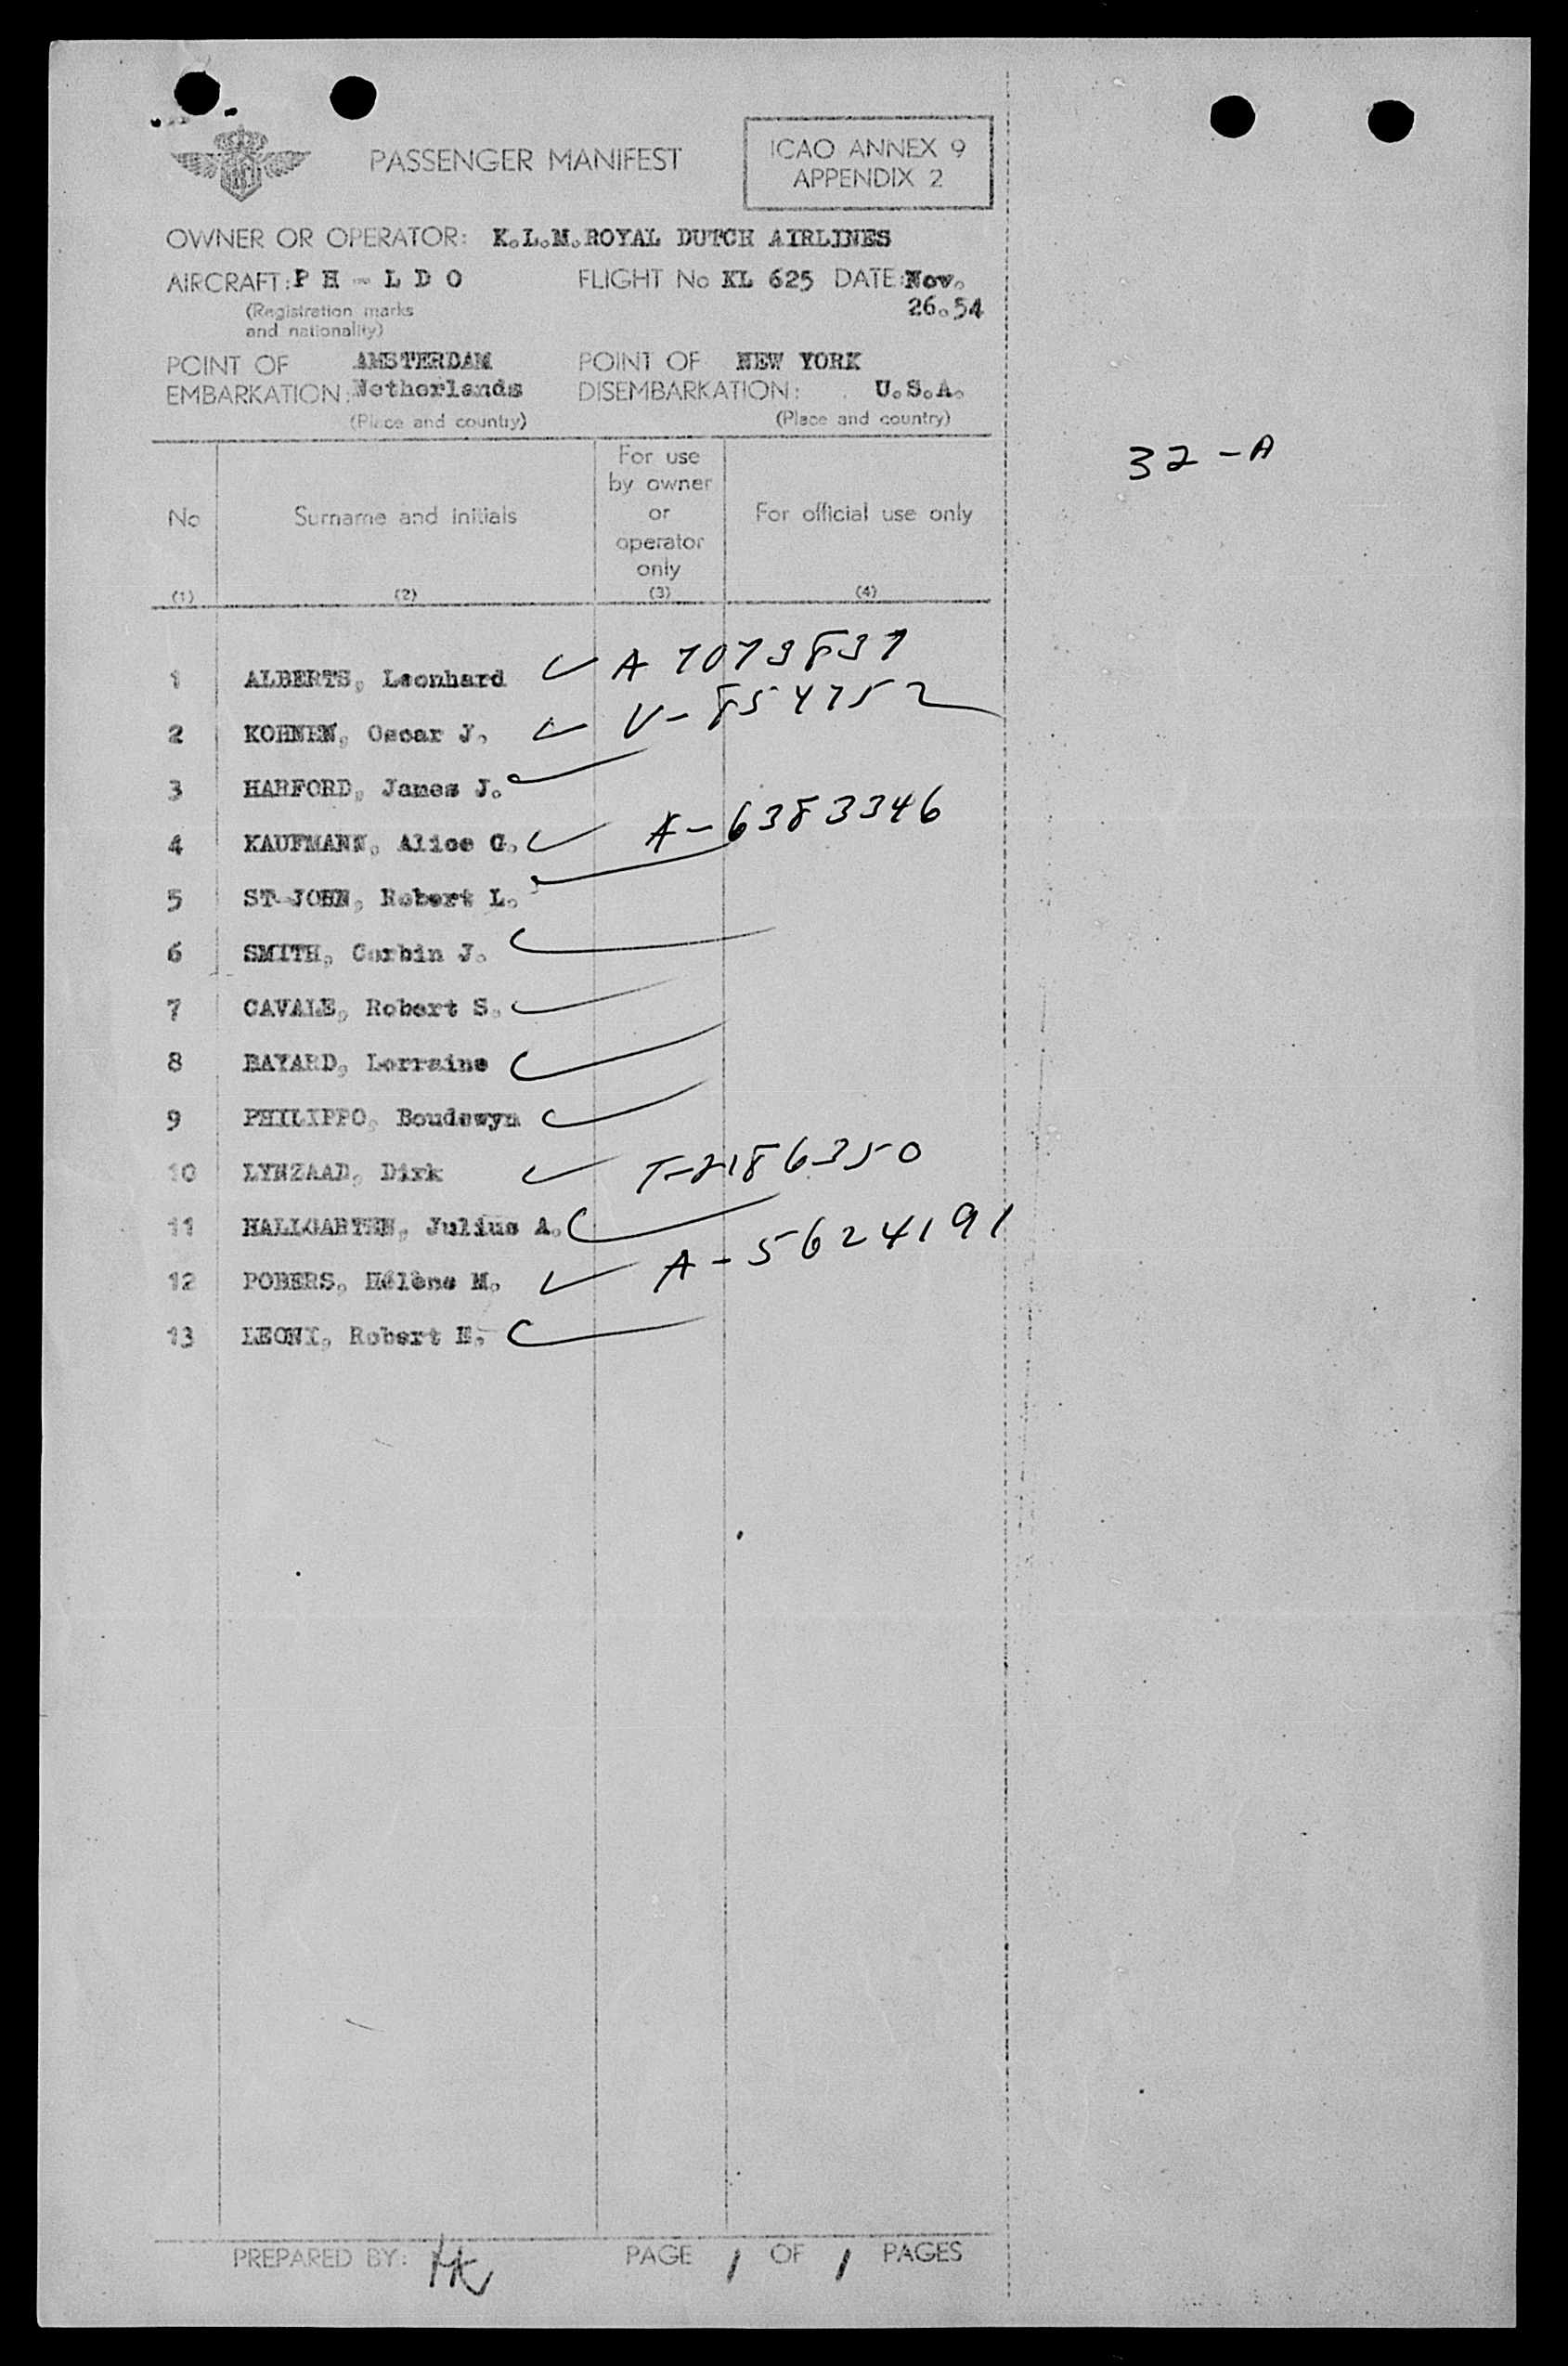 PASSENGER MANIFEST
ICAO ANNEX 9
APPENDIX 2
OWNER OR OPERATOR: K.L.M.ROYAL DUTCH AIRLINES
AIRCRAFT: P H - L D O FLIGHT No KL 625 DATE: Nov.
26.54
(Registration marks
and nationality)
POINT OF AMSTERDAM POINT OF NEW YORK
EMBARKATION: Netherlands DISEMBARKATION: U.S.A.
(Place and country) (Place and country)
32-A
No Surname and initials For use by owner or operator only For official use only
(1) (2) (3) (4)
1 ALBERTS, Leonhard ✓ A 7073837
2 KOHNEN, Oscar J. ✓ V-854752
3 HARFORD, James J. ✓
4 KAUFMANN, Alice G. ✓ A-6383346
5 ST-JOHN, Robert L. ✓
6 SMITH, Corbin J. ✓
7 CAVALE, Robert S. ✓
8 BAYARD, Lorraine ✓
9 PHILIPPO, Boudewyn ✓
10 LYNZAAD, Dirk ✓ T-2186350
11 HALLGARTEN, Julius A. ✓
12 POBERS, Hélène M. ✓ A-5624191
13 LEONI, Robert E. ✓
PREPARED BY: HK PAGE 1 OF 1 PAGES